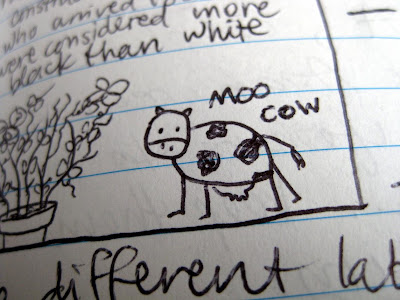 who arrived
were considered more
black than white
MOO
COW
different lat